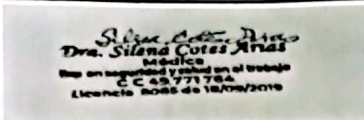 Silena Cotes Arias
Dra. Silena Cotes Arias
Médica
Esp en seguridad y salud en el trabajo
C C 49.771.764
Licencia 8085 de 18/09/2019